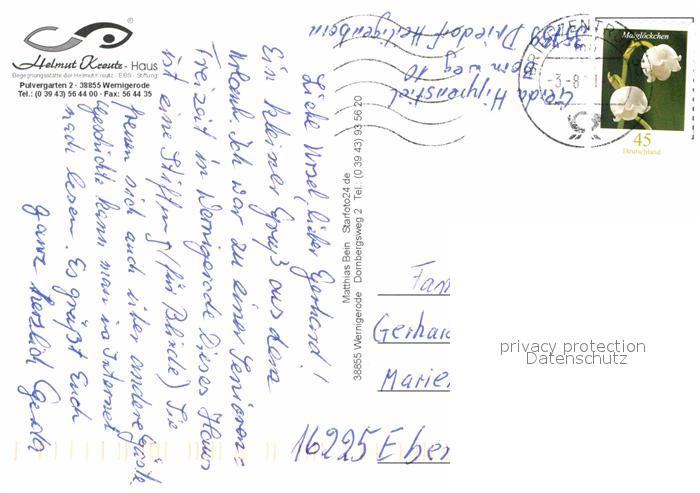 Helmut Kreutz - Haus
Begegnungsstätte der Helmut Kreutz - EIBS - Stiftung
Pulvergarten 2 · 38855 Wernigerode
Tel.: (0 39 43) 56 44 00 · Fax: 56 44 35
Liebe Ursel, lieber Gerhard!
Ein kleiner Gruß aus dem
Urlaub. Ich war zu einer Senioren=
Freizeit in Wernigerode Dieses Haus
ist eine Stiftung (für Blinde) Sie
freuen sich auch über andere Gäste
Geschichte kann man im Internet
nach lesen. Es grüßt Euch
ganz herzlich Gerda
Matthias Bein Starfoto24.de
38855 Wernigerode Dornbergsweg 2 Tel.: (0 39 43) 93 56 20
Gerda
10
Driedorf Heiligenborn
Maiglöckchen
45
Deutschland
Fam
Gerhar
Marie
16225 Eber
privacy protection
Datenschutz